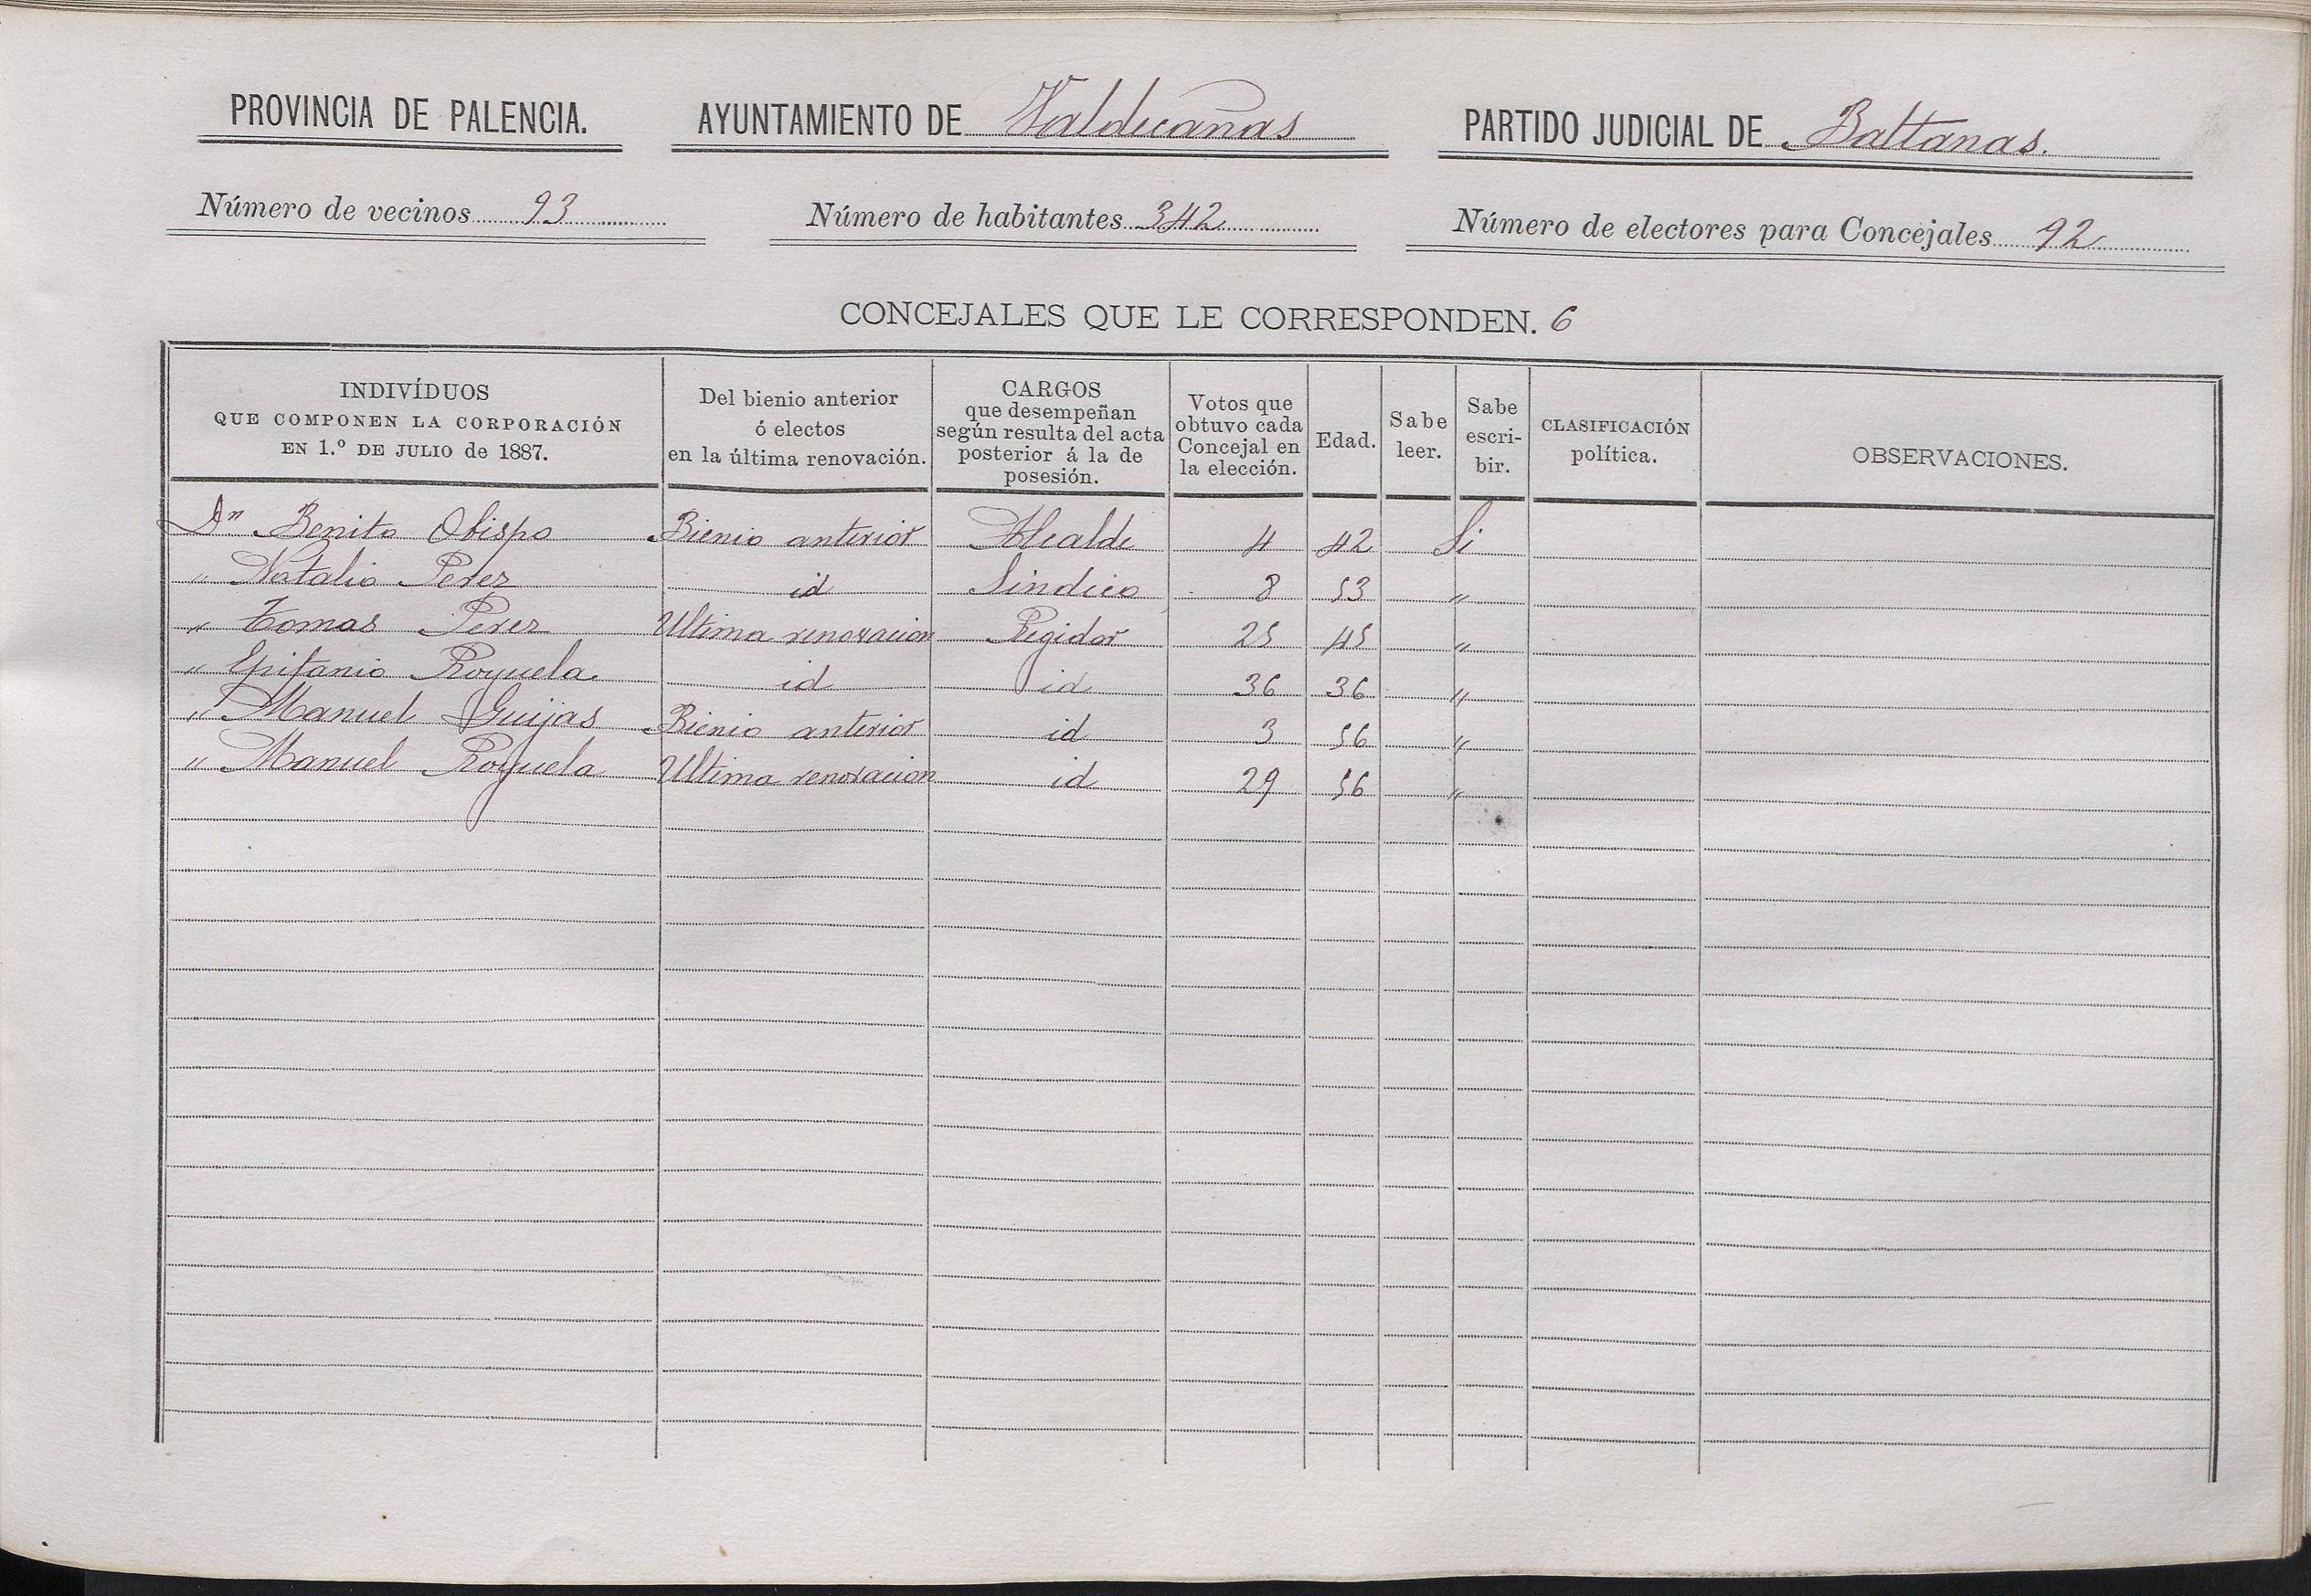 PROVINCIA DE PALENCIA. AYUNTAMIENTO DE Valdecañas PARTIDO JUDICIAL DE Baltanas.
Número de vecinos 93 Número de habitantes 342 Número de electores para Concejales 92
CONCEJALES QUE LE CORRESPONDEN. 6
INDIVÍDUOS
QUE COMPONEN LA CORPORACIÓN
EN 1.º DE JULIO de 1887.
Del bienio anterior
ó electos
en la última renovación.
CARGOS
que desempeñan
según resulta del acta
posterior á la de
posesión.
Votos que
obtuvo cada
Concejal en
la elección.
Edad.
Sabe
leer.
Sabe
escri-
bir.
CLASIFICACIÓN
política.
OBSERVACIONES.
Dn. Benito Obispo Bienio anterior Alcalde 4 42 Si
" Natalio Perez id Sindico 8 53 "
" Tomas Perez Ultima renovacion Regidor 25 45 "
" Epifanio Royuela id id 36 36 "
" Manuel Guijas Bienio anterior id 3 56 "
" Manuel Royuela Ultima renovacion id 29 56 "